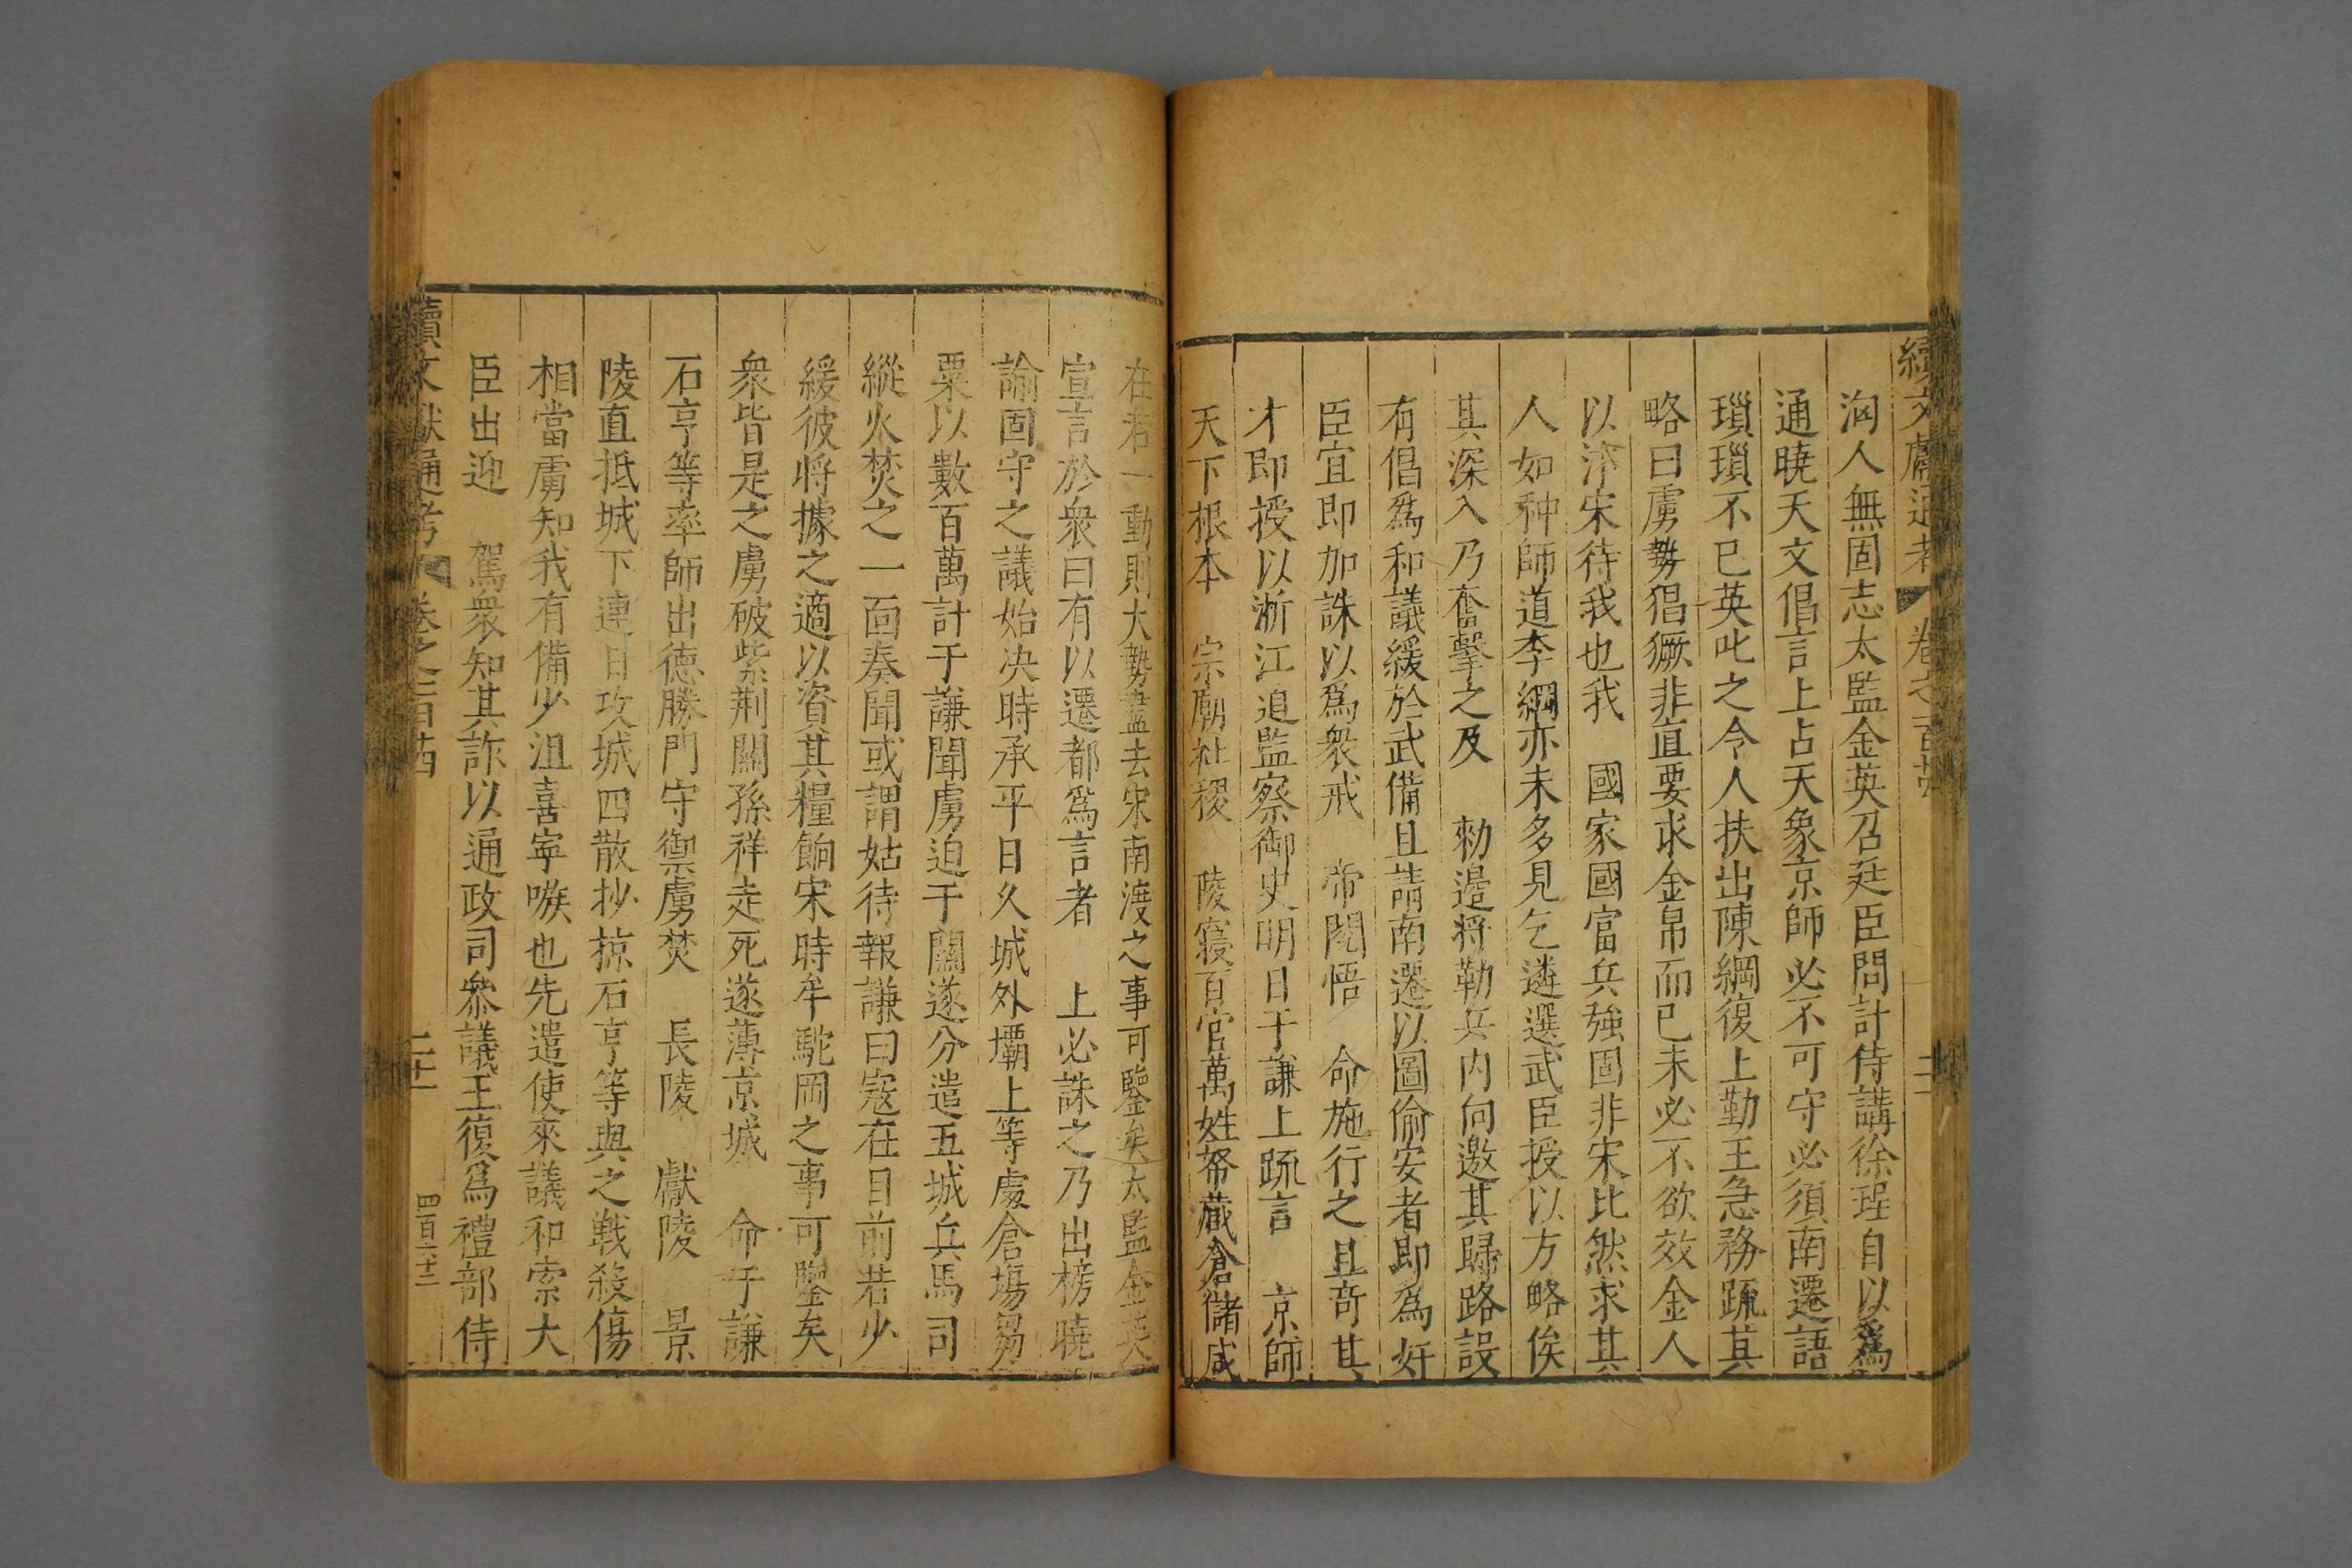 續文獻通考 卷之一百
洶人無固志太監金英召廷臣問計侍講徐珵自以爲
通曉天文倡言上占天象京師必不可守必須南遷語
瑣瑣不已英叱之令人扶出陳綱復上勤王急務疏其
略曰虜勢猖獗非直要求金帛而已未必不欲效金人
以汴宋待我也我 國家國富兵強固非宋比然求其
人如种師道李綱亦未多見乞遴選武臣授以方略俟
其深入乃奮擊之及 勑邉将勒兵内向邀其歸路設
有倡爲和議緩於武備且請南遷以圖偷安者即爲奸
臣宜即加誅以爲衆戒 帝閲悟 命施行之且奇其
才即授以浙江道監察御史明日于謙上疏言 京師
天下根本 宗廟社稷 陵寢百官萬姓帑藏倉儲咸
在若一動則大勢盡去宋南渡之事可鑒矣太監金英
宣言於衆曰有以遷都爲言者 上必誅之乃出榜曉
諭固守之議始决時承平日久城外壩上等處倉塲芻
粟以數百萬計于謙聞虜迫于關遂分遣五城兵馬司
縱火焚之一面奏聞或謂姑待報謙曰寇在目前若少
緩彼将據之適以資其糧餉宋時牟駝岡之事可鑒矣
衆皆是之虜破紫荆關孫祥走死遂薄京城 命于謙
石亨等率師出德勝門守禦虜焚 長陵 獻陵 景
陵直抵城下連日攻城四散抄掠石亨等與之戰殺傷
相當虜知我有備少沮喜寧嗾也先遣使來議和索大
臣出迎 駕衆知其詐以通政司叅議王復爲禮部侍
續文獻通考 卷之一百
四百六十二